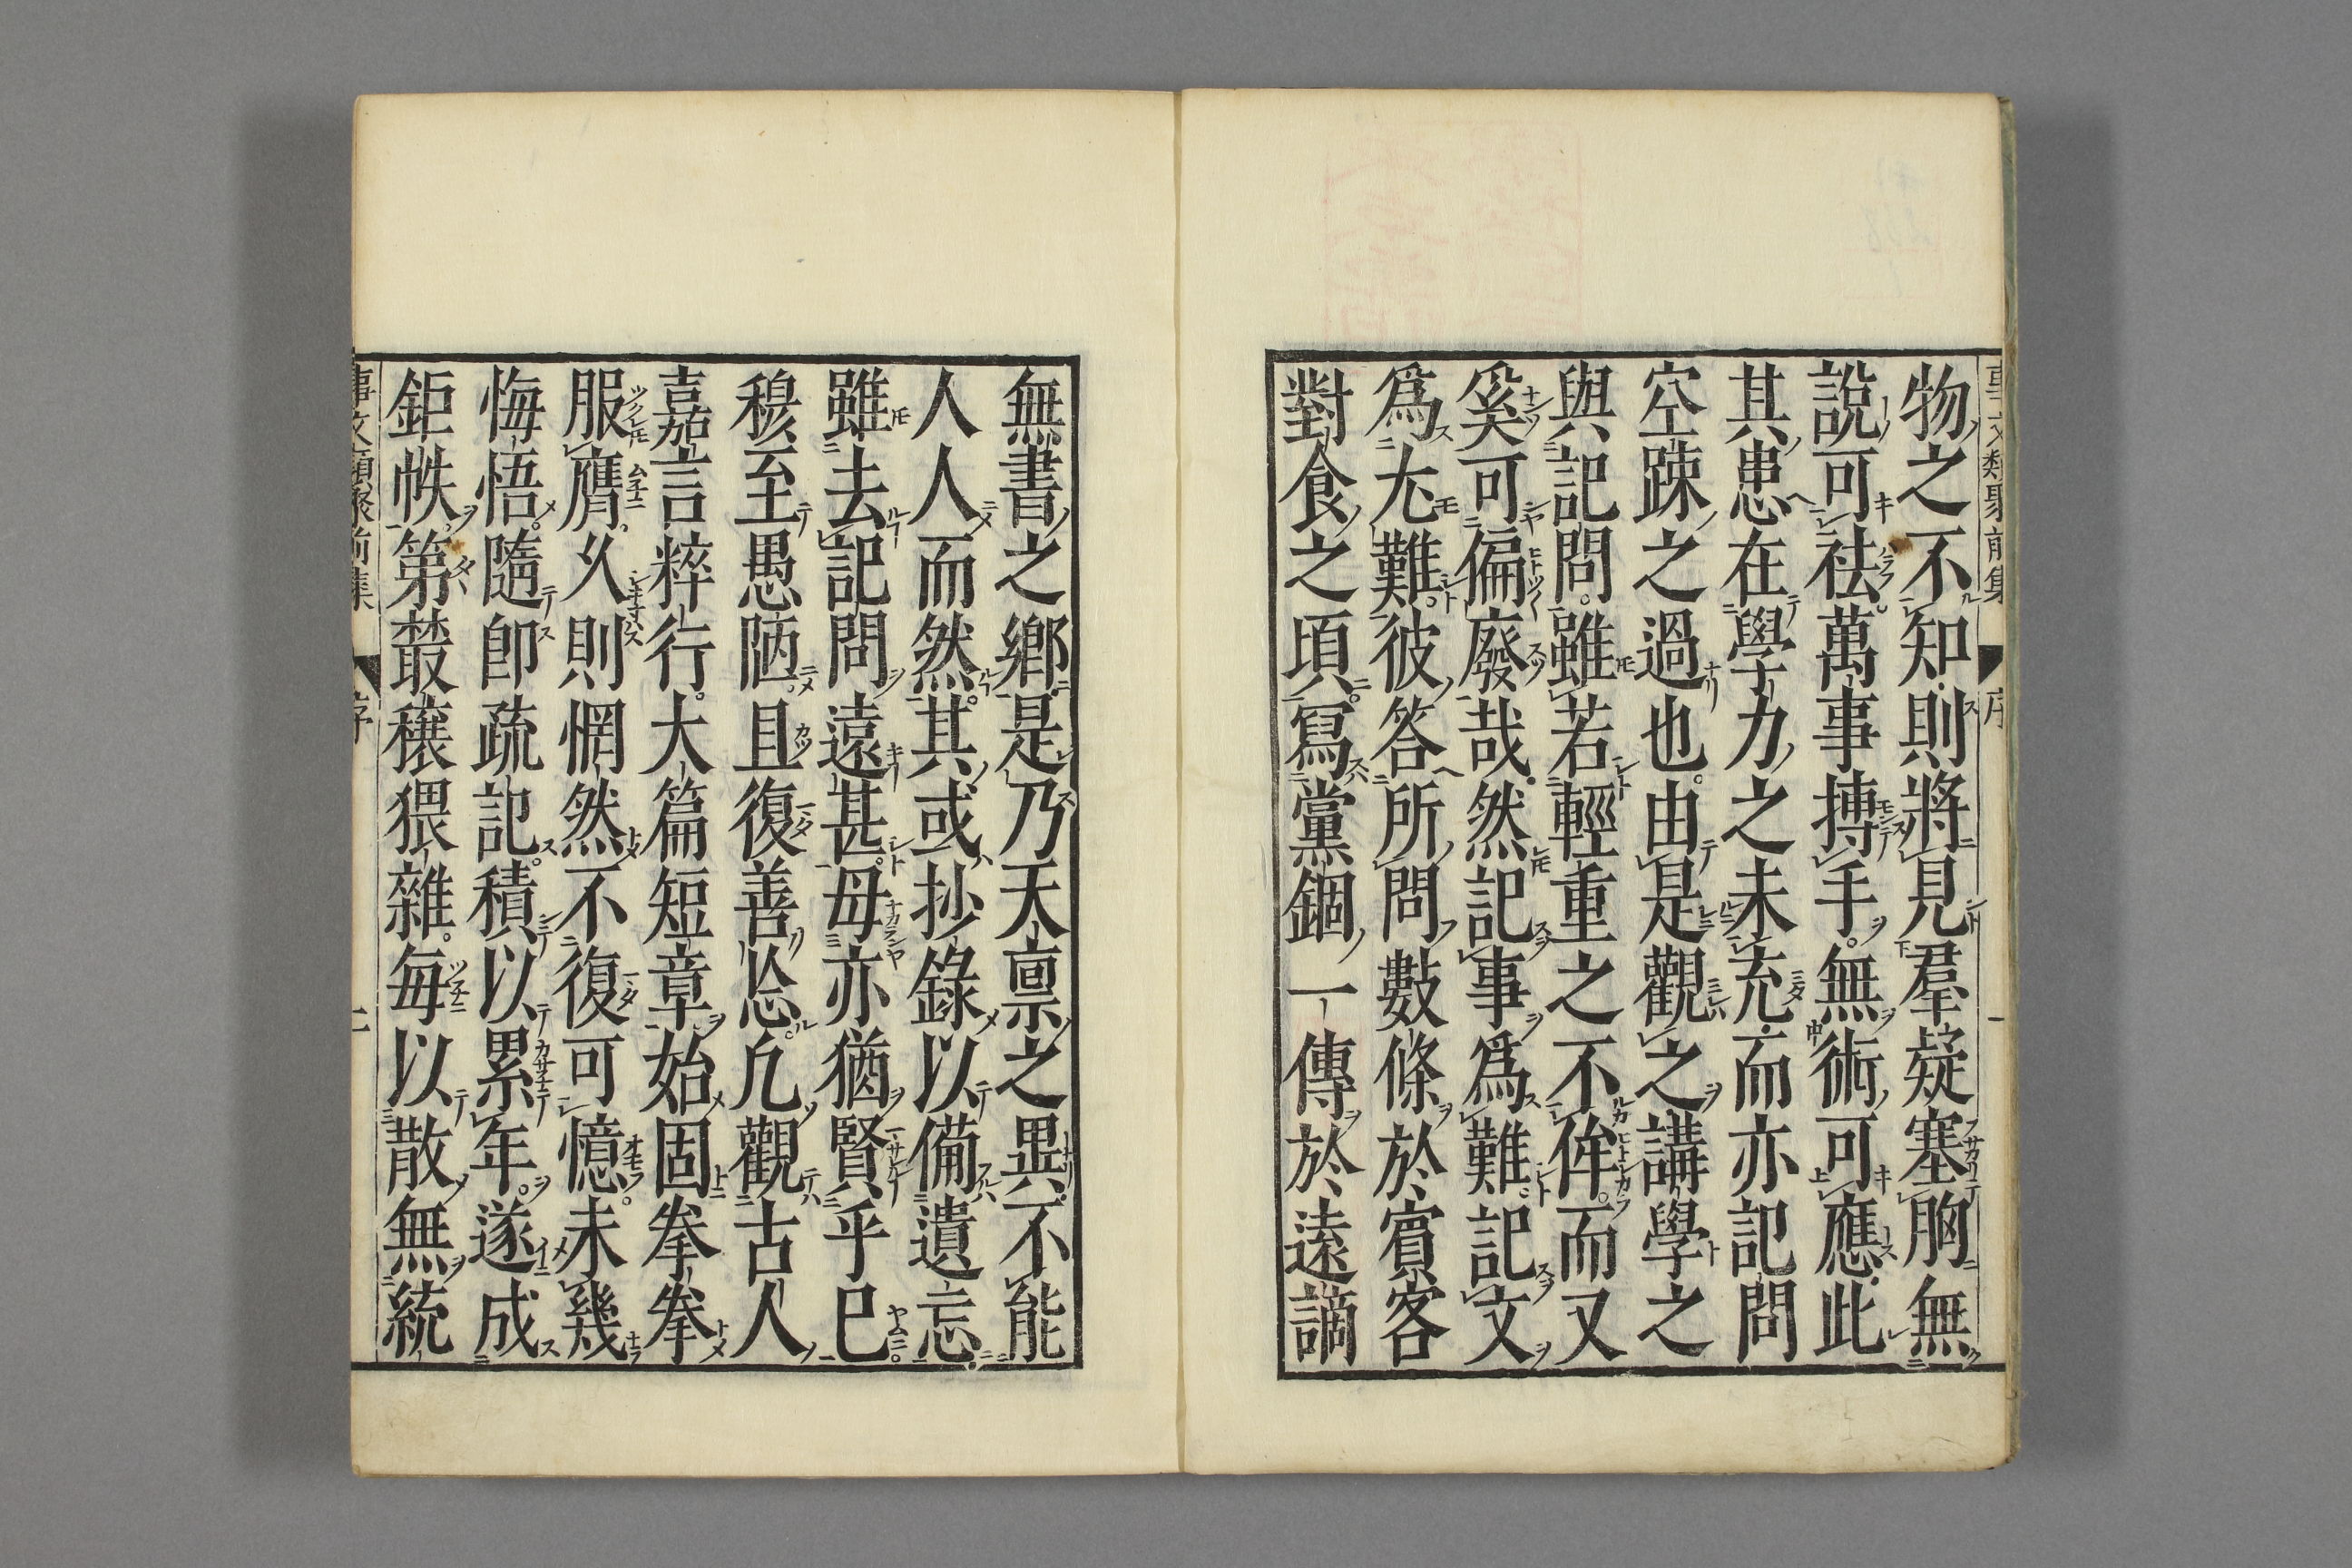 事文類聚前集 序 一
物之不知則將見羣疑塞胸無
說可祛萬事摶手無術可應此
其患在學力之未充而亦記問
空踈之過也由是觀之講學之
與記問雖若輕重之不侔而又
奚可偏廢哉然記事爲難記文
爲尤難彼答所問數條於賓客
對食之頃寫黨錮一傳於遠謫
無書之鄉是乃天禀之異不能
人人而然其或抄錄以備遺忘
雖去記問遠甚毋亦猶賢乎已
穆至愚陋且復善忘凢觀古人
嘉言粹行大篇短章始固拳拳
服膺乆則惘然不復可憶未幾
悔悟隨卽疏記積以累年遂成
鉅帙第叢穰猥雜每以散無統
事文類聚前集 序 二